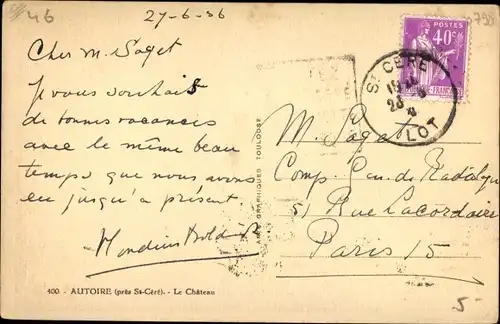 46
27-6-36
Cher M. Saget
Je vous souhais
de bonnes vacances
avec le même beau
temps que nous avons
eu jusqu'à présent
400. - AUTOIRE (près St-Céré). - Le Château
ARTS GRAPHIQUES TOULOUSE
POSTES
40c
ST CÉRÉ
LOT
M. Saget
Comp. de
51 Rue Lacordaire
Paris 15
5-